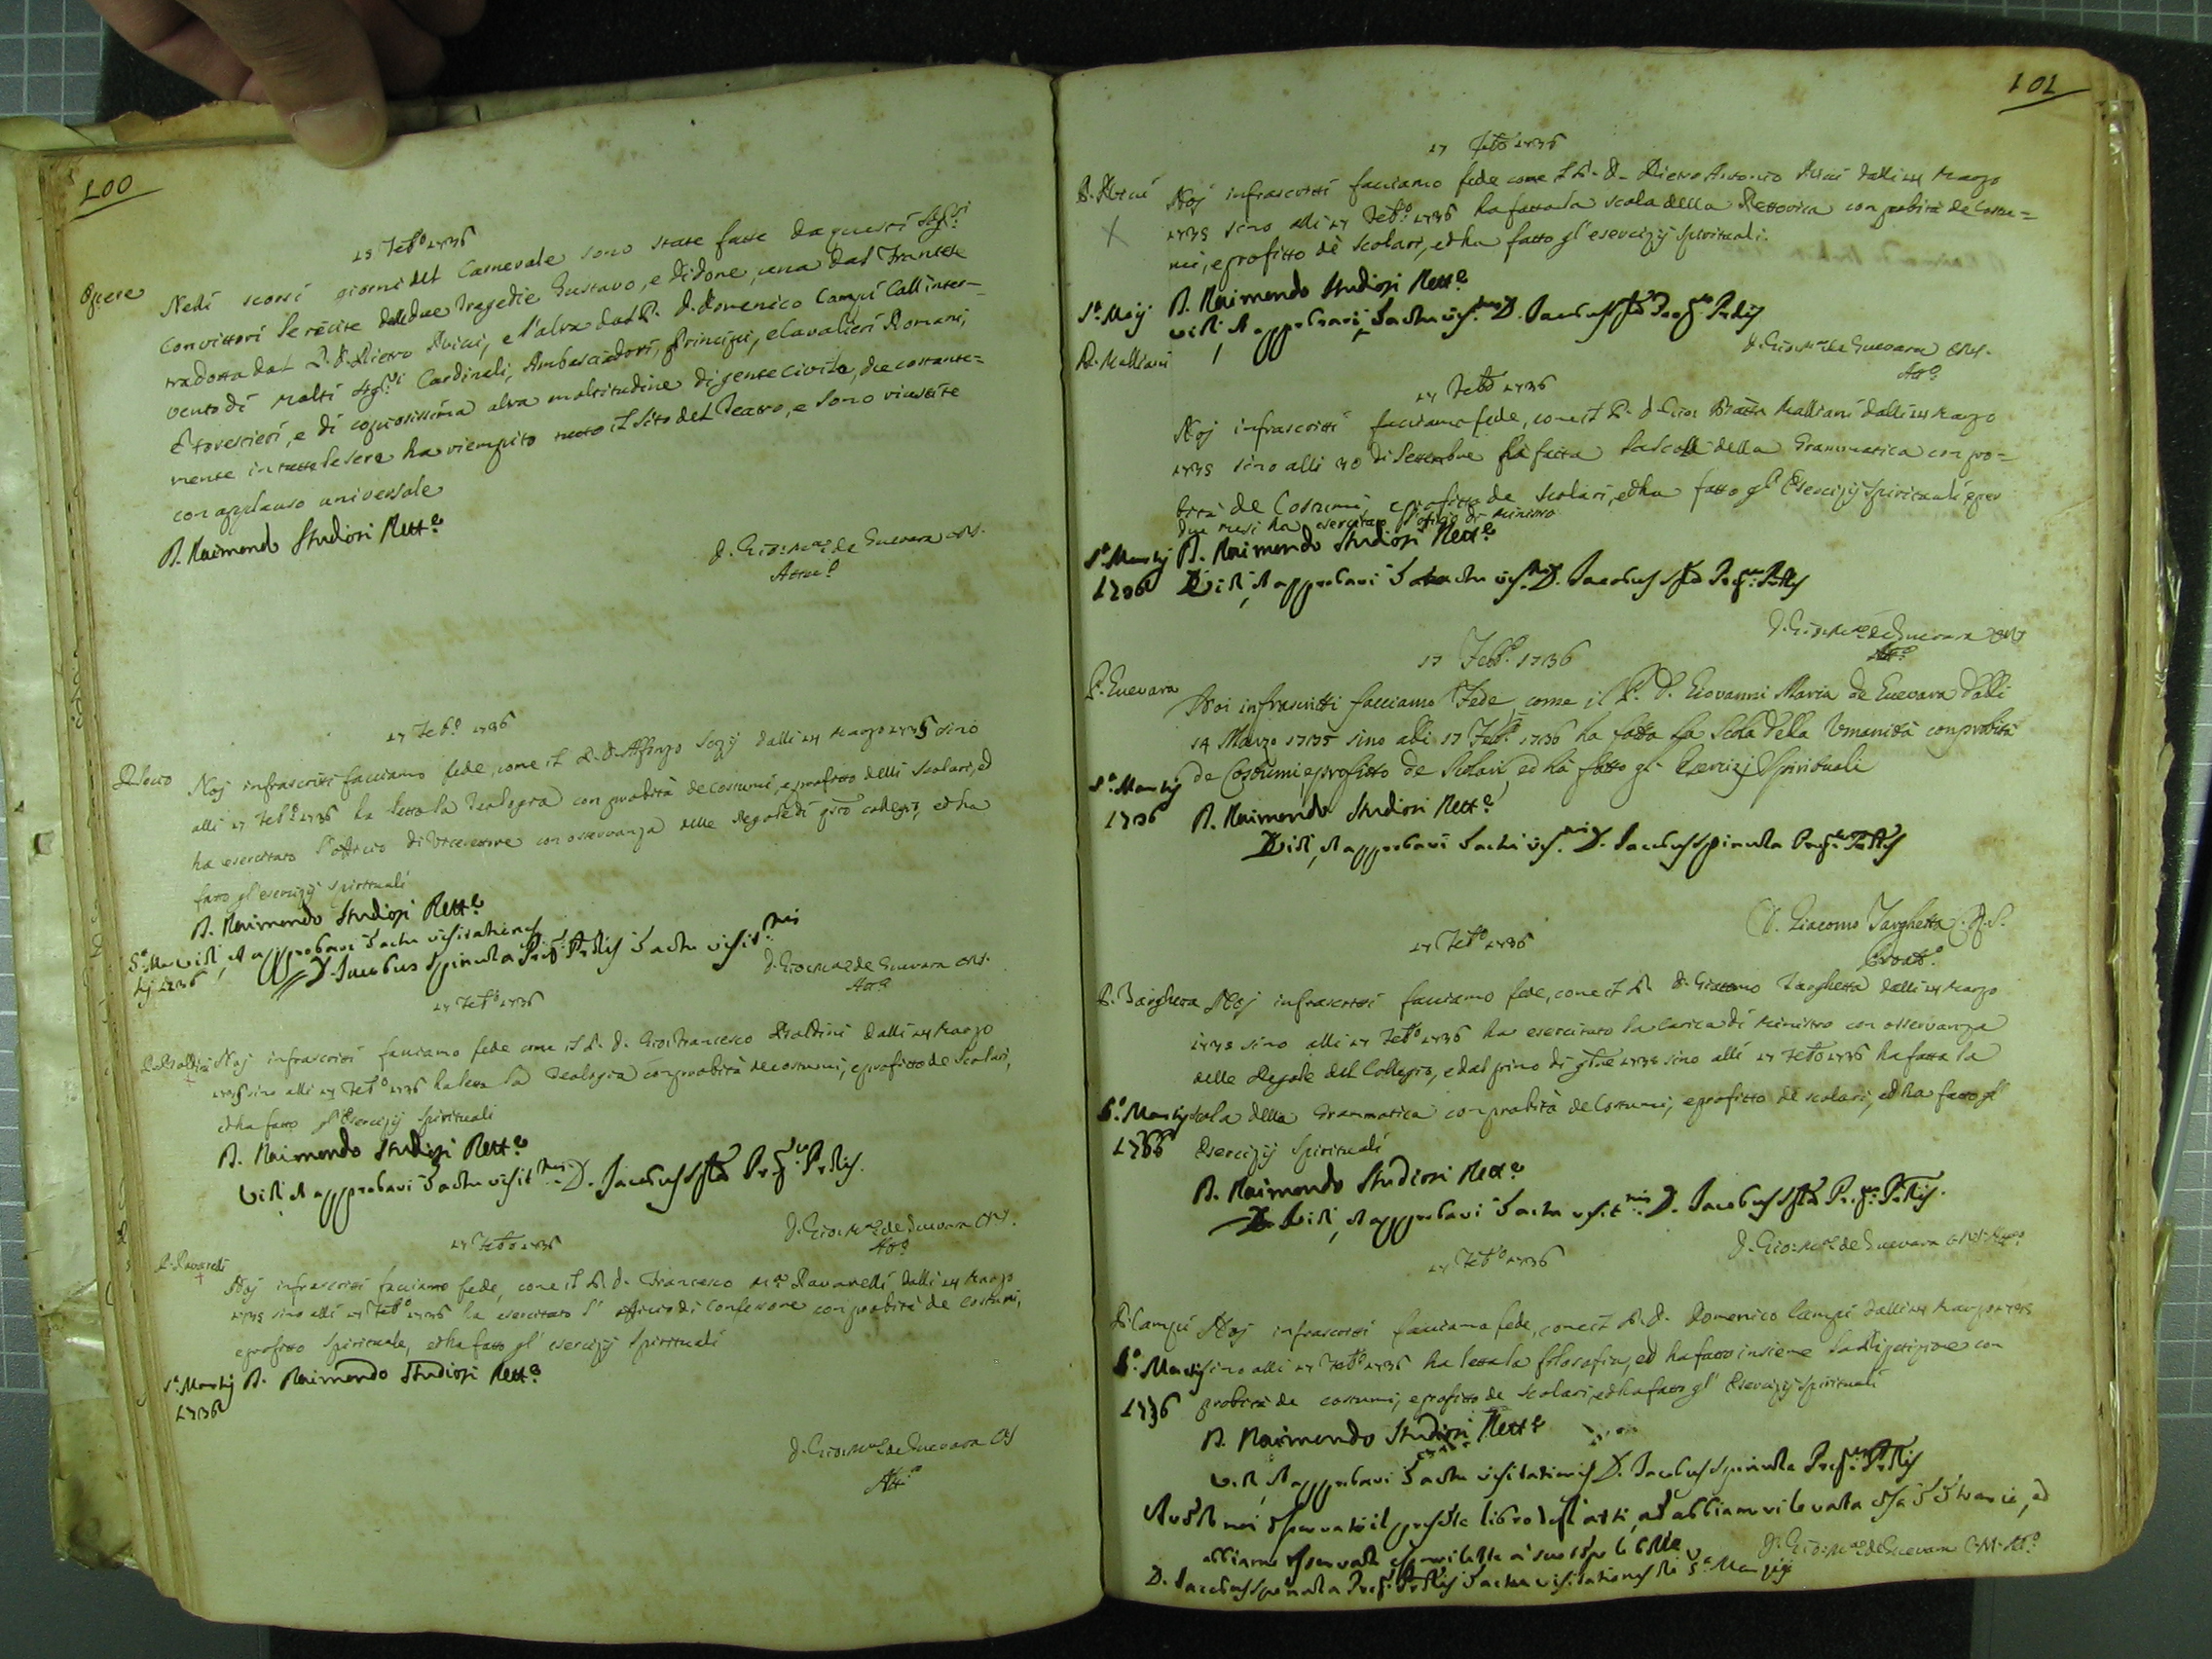 100
15 Feb.o 1736
Opere
Nedi scorsi giorni del Carnevale sono state fatte da questi Sig.ri
Convittori le recite delle due Tragedie Gustavo, e Didone, una dal Francese
tradotta dal P. D. Pietro Ricci, e l'altra dal P. D. Domenico Campi coll'inter-
vento di molti Sig.ri Cardinali, Ambasciadori, Principi, e Cavalieri Romani,
e forestieri, e di copiosissima altra moltitudine di gente civile, che costante=
mente in tutte le sere ha riempito tutto il sito del Teatro, e sono riuscite
con applauso universale
D. Raimondo Studiosi Rett.e
D. Gio: M.a de Guevara CRS.
Attu.o
17 Feb.o 1736
Noj infrascritti facciamo fede, come il P. D. Alfonzo Sozij dalli 14 Marzo 1735 sino
alli 17 Feb.o 1736 ha letto la Teologia con probità de costumi, e profitto delli scolari, ed
ha esercitato l'offitio di Vicerettore con osservanza delle Regole di q.sto collegio, ed ha
fatto gl'esercizij spirituali
D. Raimondo Studiosi Rett.e
5.a Mar
tij 1736
Vidi, et approbavi in actu visitationis
D. Jacobus Spinula Prep. Prlis in actu visit.nis
D. Gio: M.a de Guevara CRS.
Att.o
17 Feb.o 1736
P. Baldini
Noj infrascritti facciamo fede come il P. D. Gio: Francesco Baldini dalli 14 Marzo
1735 sino alli 17 Feb.o 1736 ha letta la Teologia con probità de costumi, e profitto de scolari,
ed ha fatto gl'Esercizij spirituali
D. Raimondo Studiosi Rett.e
Vidi et approbavi in actu visit.nis D. Jacobus Spla Prep. Prlis.
D. Gio: M.a de Guevara CRS.
Att.o
17 Feb.o 1736
P. Ravanelli
Noj infrascritti facciamo fede, come il P. D. Francesco M.a Ravanelli dalli 14 Marzo
1735 sino alli 17 Feb.o 1736 ha esercitato l'officio di Confessore con probità de costumi,
e profitto spirituale, ed ha fatto gl'esercizij spirituali
5.a Martij
1736
D. Raimondo Studiosi Rett.e
D. Gio: M.a de Guevara CRS
Att.o
101
17 Feb.o 1736
P. Ricci
Noj infrascritti facciamo fede come il P. D. Pietro Antonio Ricci dalli 14 Marzo
1735 sino alli 17 Feb.o 1736 ha fatto la scola della Rettorica con probità de Costu=
mi, e profitto de scolari, ed ha fatto gl'esercizij spirituali.
D. Raimondo Studiosi Rett.e
vidi, et approbavi in actu vis.nis D. Jacobus Spla Prep. Prlis
D. Gio: M.a de Guevara CRS.
Att.o
P. Malliani
17 Feb.o 1736
Noj infrascritti facciamo fede, come il P. D. Gio: Batta Malliani dalli 14 Marzo
1735 sino alli 30 di Settembre ha fatta la scola della Grammatica con pro=
bità de Costumi, e profitto de scolari, ed ha fatto gl'Esercizij spirituali e per
due mesi ha esercitato l'offitio di Ministro
D. Raimondo Studiosi Rett.e
5.a Martij
1736
Vidi, et approbavi in actu vis.nis D. Jacobus Spla Prep. Prlis
D. Gio: M.a de Guevara CRS
Att.o
17 Febb.o 1736
P. Guevara
Noi infrascritti facciamo Fede, come il P. D. Giovanni Maria de Guevara dalli
14 Marzo 1735 sino alli 17 Feb.o 1736 ha fatta la Scola della Umanità con probità
de Costumi, e profitto de Scolari, ed hà fatto gl' Esercizj Spirituali
5.a Martij
1736
D. Raimondo Studiosi Rett.e
Vidi, et approbavi in actu vis.nis D. Jacobus Spinula Prep. Prlis
D. Giacomo Targhetta C.R.S.
17 Feb.o 1736
P. Targhetta
Noj infrascritti facciamo fede, come il P. D. Giacomo Targhetta dalli 14 Marzo
1735 sino alli 17 Feb.o 1736 ha esercitato la carica di Ministro con osservanza
delle Regole del Collegio, e dal primo di 1735 sino alli 17 Feb.o 1736 ha fatta la
scola della Grammatica con probità de Costumi, e profitto de scolari, ed ha fatto gl'
Esercizij spirituali
5.a Martij
1736
D. Raimondo Studiosi Rett.e
Vidi, et approbavi in actu visit.nis D. Jacobus Spla Prep. Prlis.
D. Gio: M.a de Guevara CRS
17 Feb.o 1736
P. Campi
Noj infrascritti facciamo fede, come il P. D. Domenico Campi dalli 14 Marzo 1735
sino alli 17 Feb.o 1736 ha letta la filosofia, ed ha fatto insieme la Ripetizione con
probità de costumi, e profitto de scolari, ed ha fatto gl'Esercizij spirituali
5.a Martij
1736
D. Raimondo Studiosi Rett.e
Vidi, et approbavi in actu visitationis D. Jacobus Spinula Prep. Prlis
libro degl'atti, ed abbiam rilevata
abbiamo
D. Gio: M.a de Guevara
D. Jacobus Spinula Prep. Prlis in actu visitationis die 5.a Martij